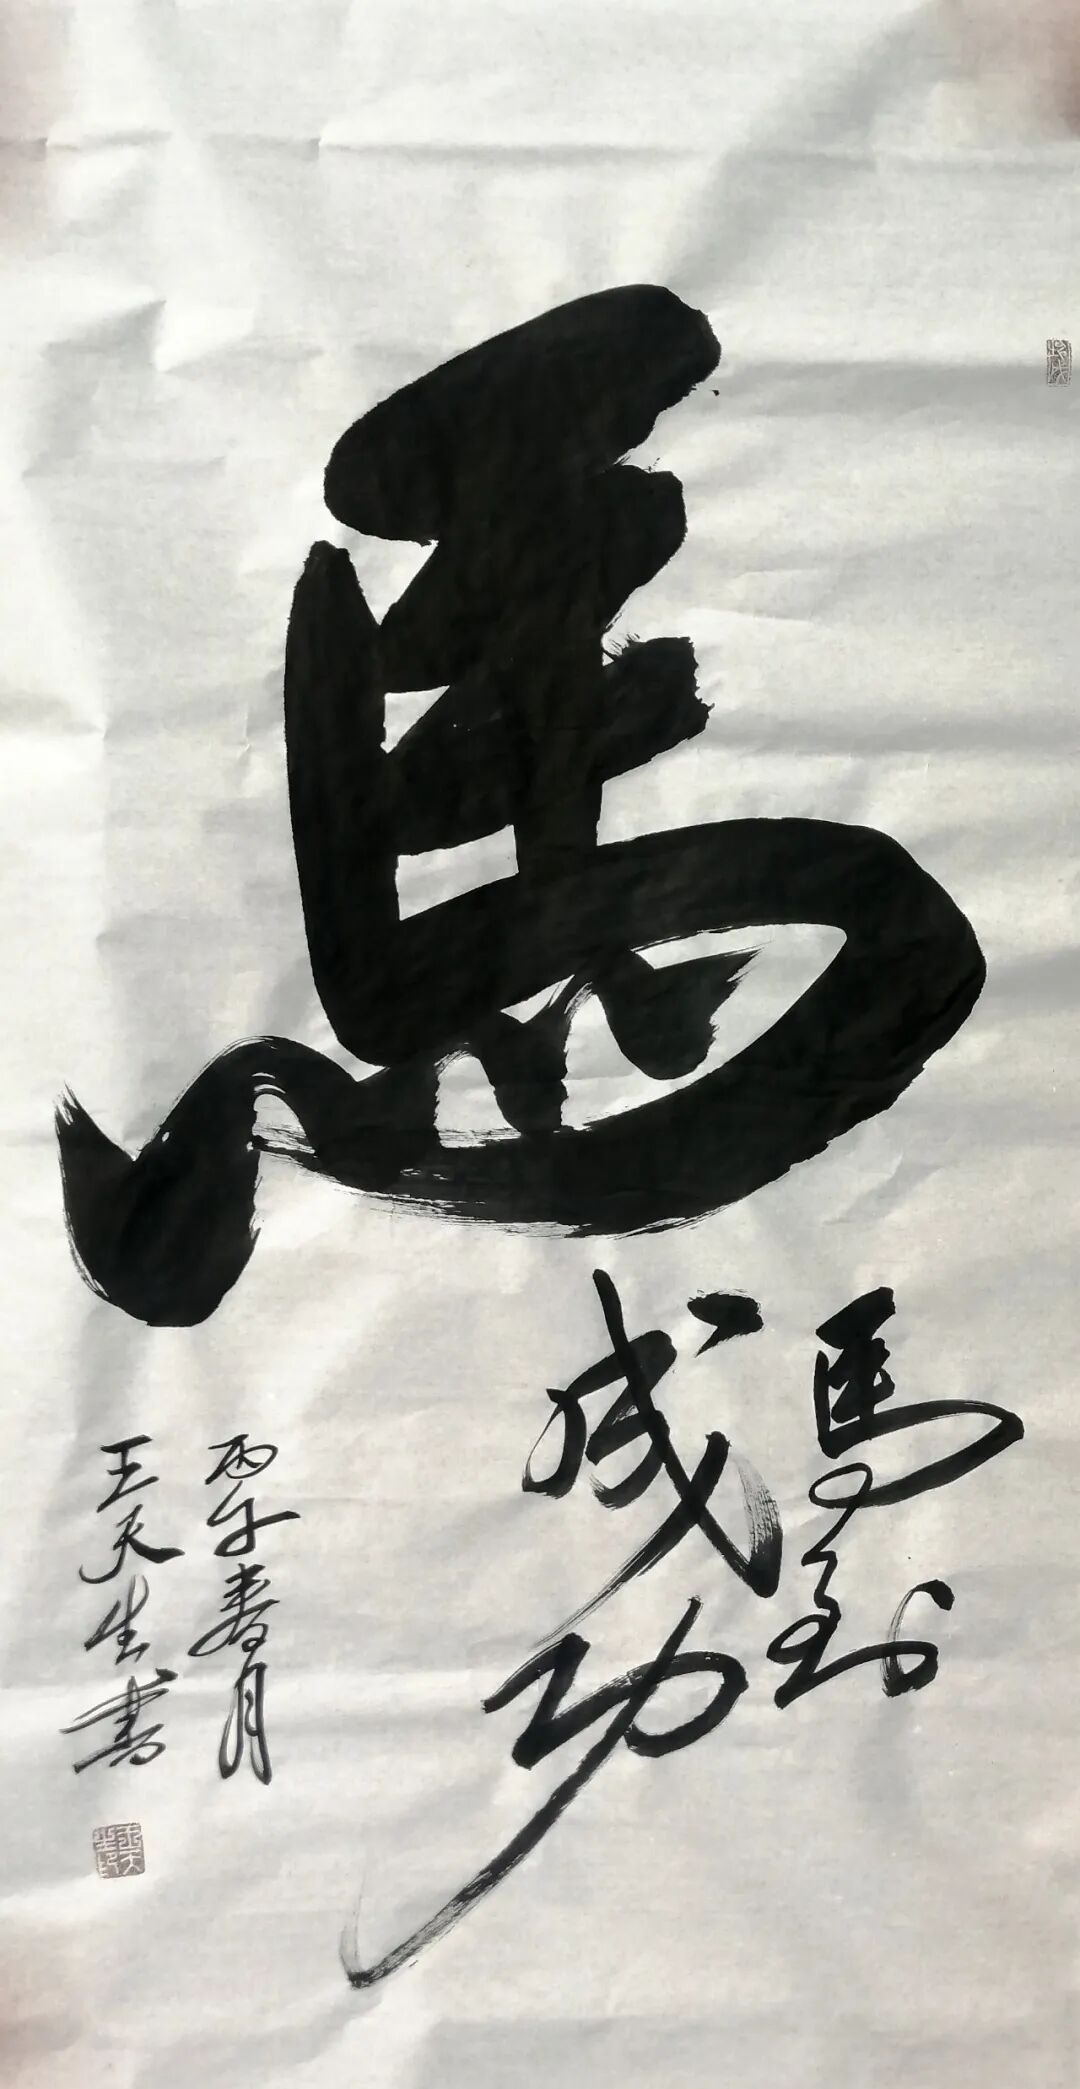 馬
馬到
成功
丙午春月
王天生書